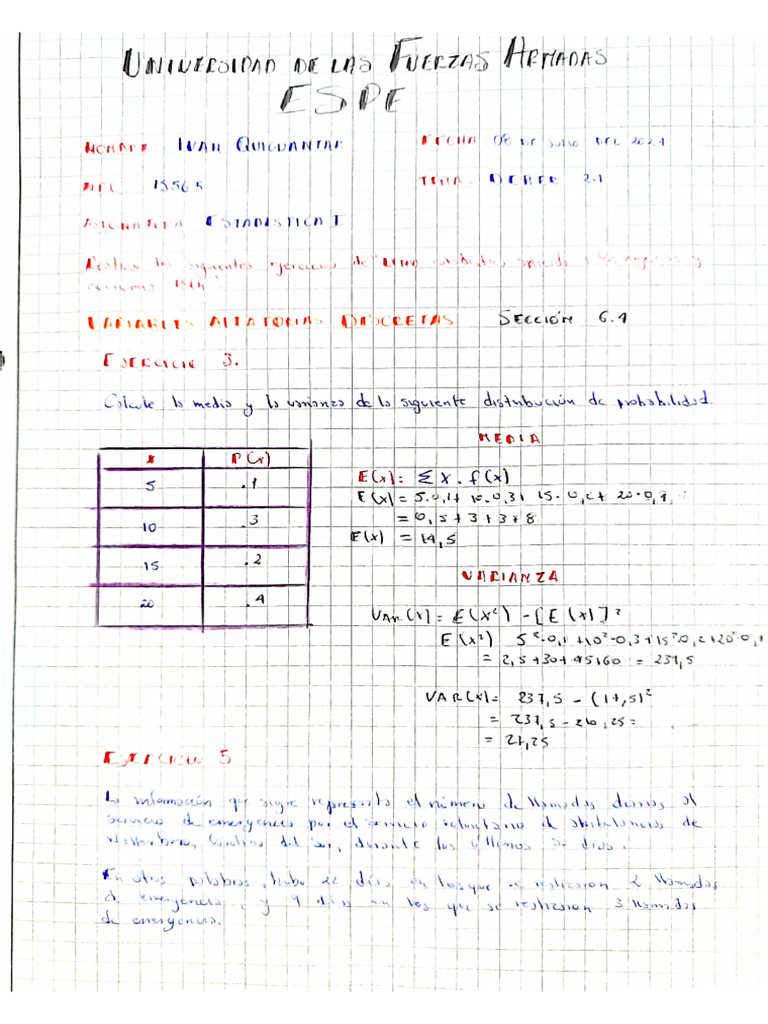 UNIVERSIDAD DE LAS FUERZAS ARMADAS
ESPE
NOMBRE IVAN
FECHA 08 DE Julio DEL 2021
NRC 15565
TEMA: DEBER 2.1
ASIGNATURA ESTADISTICA I
los siguientes ejercicios de y
VARIABLES ALEATORIAS DISCRETAS SECCIÓN 6.1
EJERCICIO 3.
Calcule la media y la varianza de la siguiente distribución de probabilidad.
MEDIA
x P(x)
5 .1
10 .3
15 .2
20 .4
E(x): Σ x . f(x)
E(x) = 5.0,1+ 10.0,3+ 15.0,2+ 20.0,4
= 0,5+3+3+8
E(x) = 14,5
VARIANZA
VAR(x) = E(x²) - [E(x)]²
E(x²) 5²·0,1+10²·0,3+15²·0,2+20²·0,
= 2,5+30+45+160 = 237,5
VAR(x) = 237,5 - (14,5)²
= 237,5 - 210,25 =
= 27,25
EJERCICIO 5
La información que sigue representa el número de llamadas diarias al
servicio de emergencia por el servicio voluntario de ambulancias de
Carolina del Sur, durante los últimos 50 días.
En otras palabras, hubo 22 días en los que se realizaron 2 llamadas
de emergencia, y 9 días en los que se realizaron 3 llamadas
de emergencia.